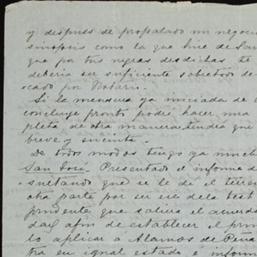 y despues de propalado un negocio
sinopsis como la que hice de San
que por tus negras desdichas te
deberia ser suficiente sobretodo
cado por Notario.
Si la mensura ya iniciada de
concluye pronto podré hacer una
pleta de otra manera tendra que
breve y sucinta.
De todo modos tengo ya mucho
San José. Presentado el informe
sultando que se le dé el terreno
otra parte por ser eje de la test
prudente que saliera el acuerdo
dad afin de establecer el
lo aplicar a Alamos de Peña
tra en igual estado e